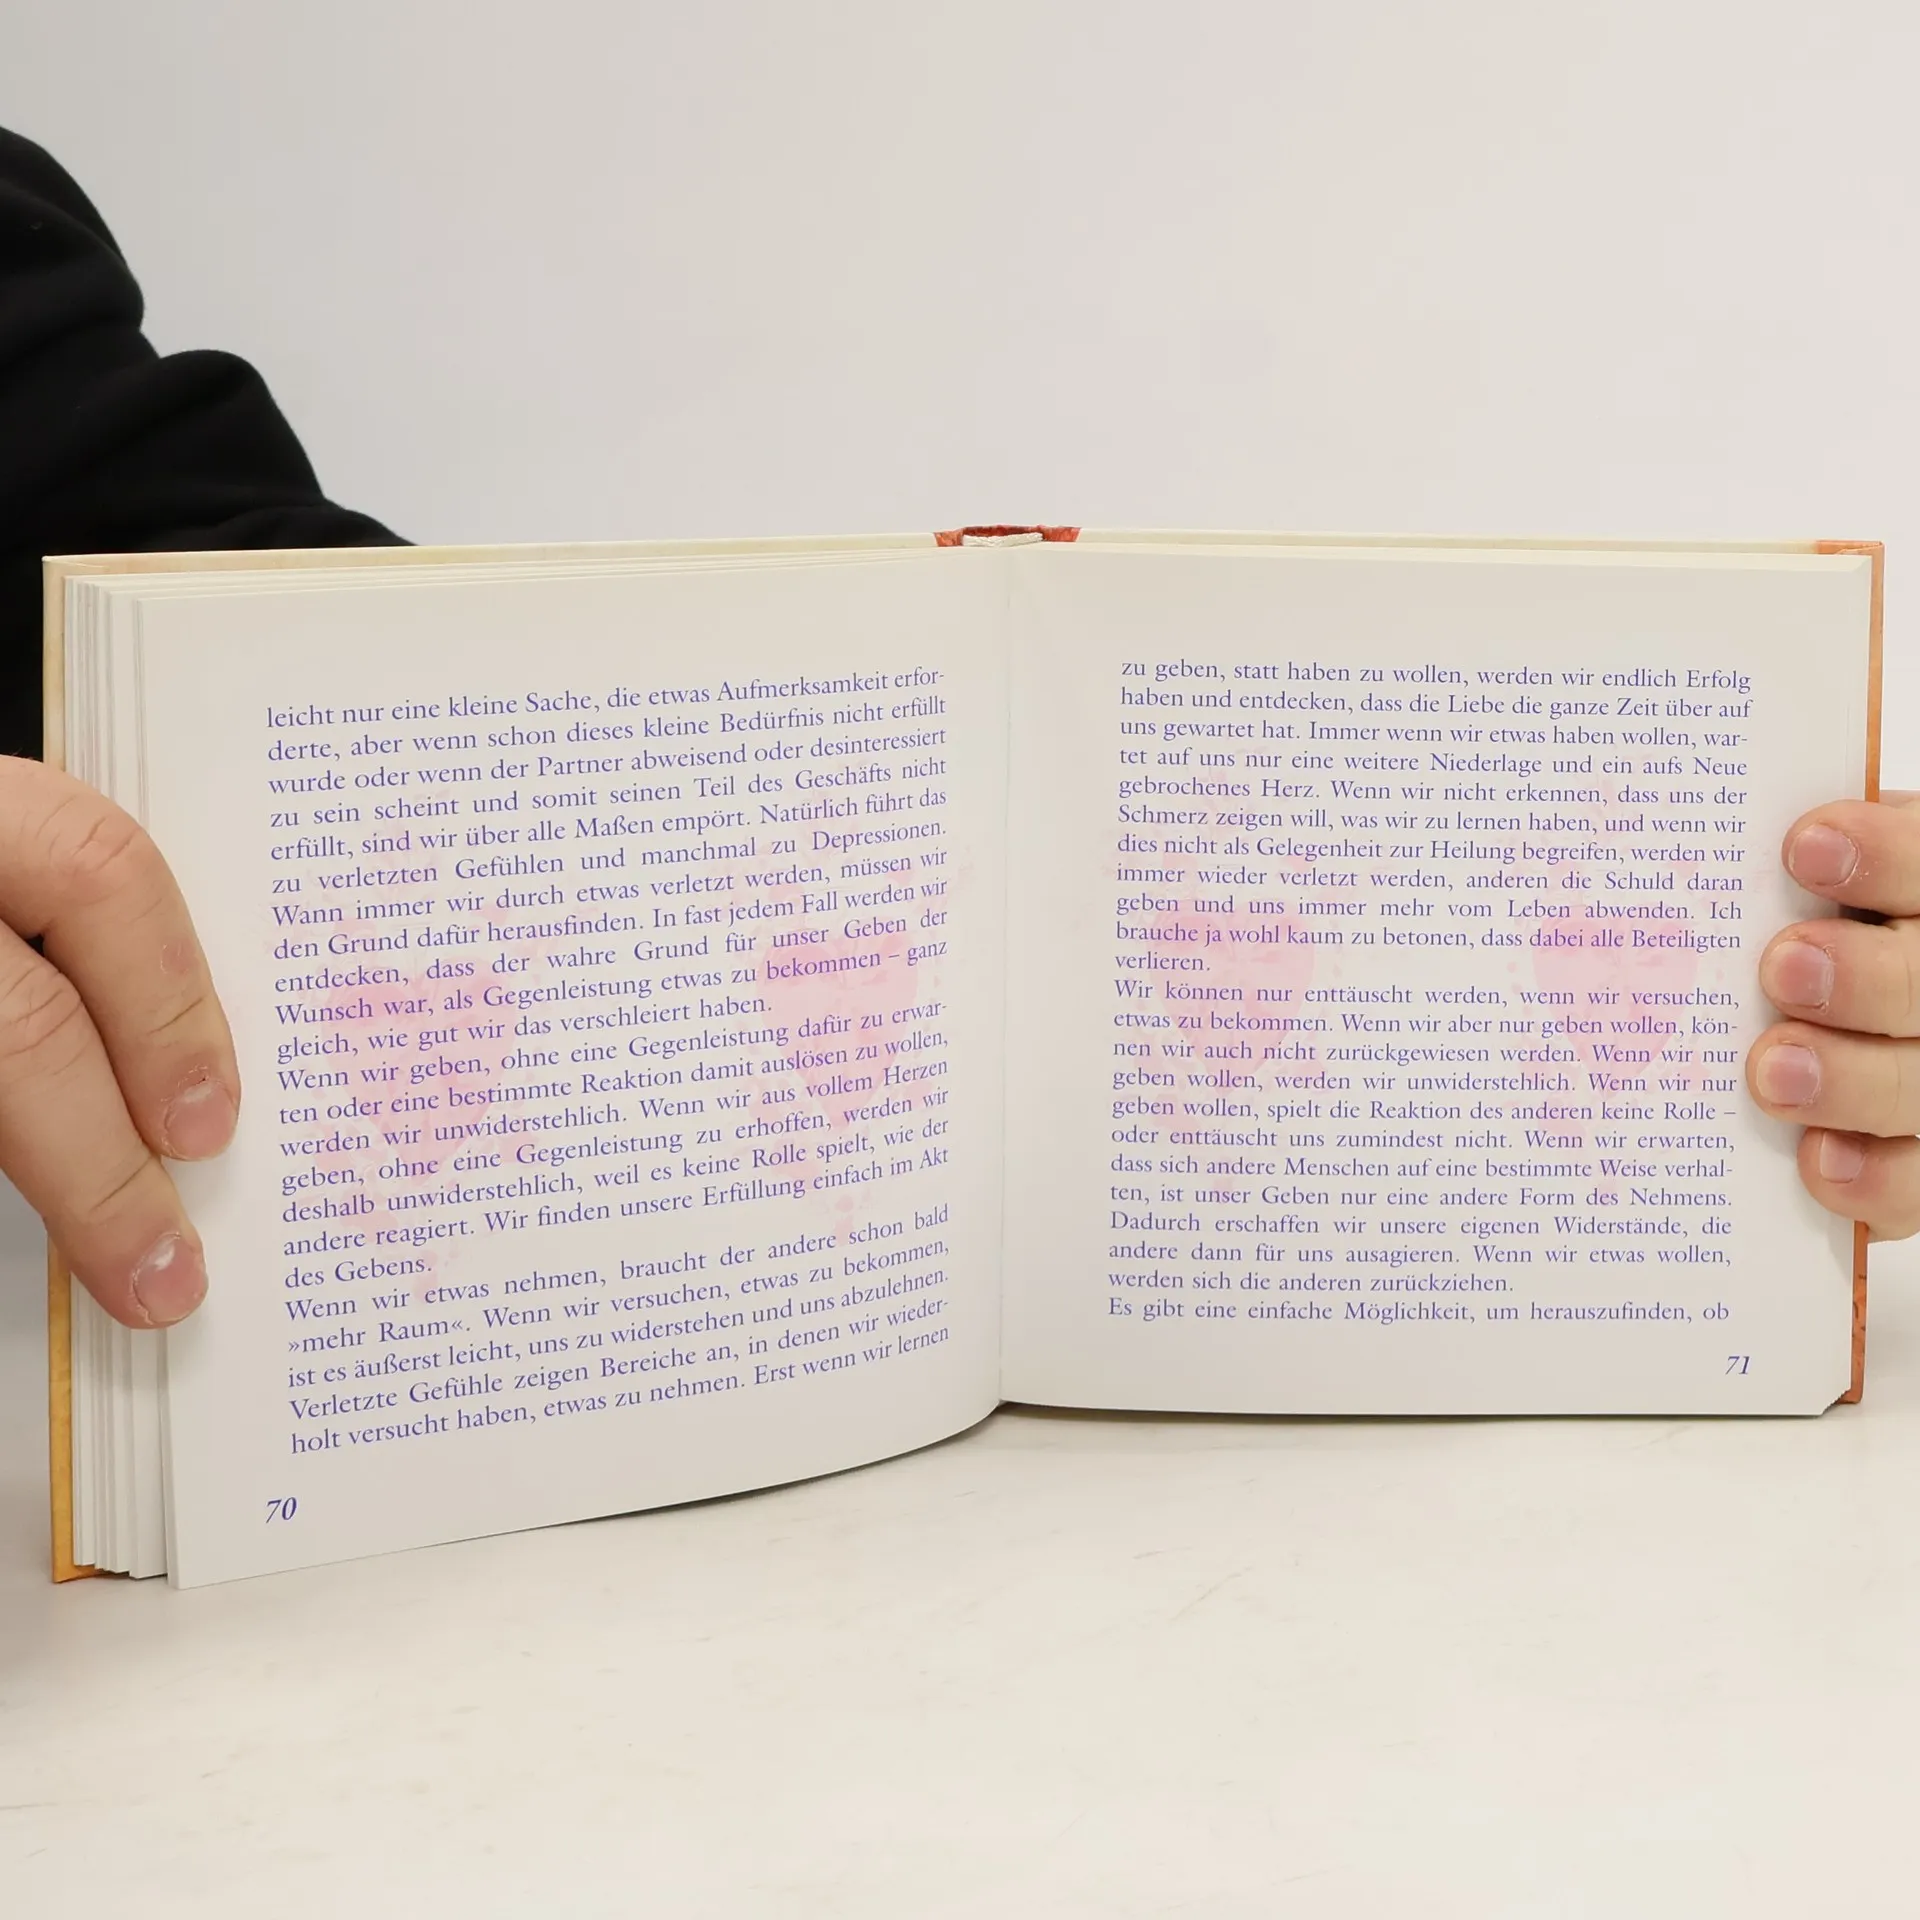 leicht nur eine kleine Sache, die etwas Aufmerksamkeit erfor-
derte, aber wenn schon dieses kleine Bedürfnis nicht erfüllt
wurde oder wenn der Partner abweisend oder desinteressiert
zu sein scheint und somit seinen Teil des Geschäfts nicht
erfüllt, sind wir über alle Maßen empört. Natürlich führt das
zu verletzten Gefühlen und manchmal zu Depressionen.
Wann immer wir durch etwas verletzt werden, müssen wir
den Grund dafür herausfinden. In fast jedem Fall werden wir
entdecken, dass der wahre Grund für unser Geben der
Wunsch war, als Gegenleistung etwas zu bekommen – ganz
gleich, wie gut wir das verschleiert haben.
Wenn wir geben, ohne eine Gegenleistung dafür zu erwar-
ten oder eine bestimmte Reaktion damit auslösen zu wollen,
werden wir unwiderstehlich. Wenn wir aus vollem Herzen
geben, ohne eine Gegenleistung zu erhoffen, werden wir
deshalb unwiderstehlich, weil es keine Rolle spielt, wie der
andere reagiert. Wir finden unsere Erfüllung einfach im Akt
des Gebens.
Wenn wir etwas nehmen, braucht der andere schon bald
»mehr Raum«. Wenn wir versuchen, etwas zu bekommen,
ist es äußerst leicht, uns zu widerstehen und uns abzulehnen.
Verletzte Gefühle zeigen Bereiche an, in denen wir wieder-
holt versucht haben, etwas zu nehmen. Erst wenn wir lernen
70
zu geben, statt haben zu wollen, werden wir endlich Erfolg
haben und entdecken, dass die Liebe die ganze Zeit über auf
uns gewartet hat. Immer wenn wir etwas haben wollen, war-
tet auf uns nur eine weitere Niederlage und ein aufs Neue
gebrochenes Herz. Wenn wir nicht erkennen, dass uns der
Schmerz zeigen will, was wir zu lernen haben, und wenn wir
dies nicht als Gelegenheit zur Heilung begreifen, werden wir
immer wieder verletzt werden, anderen die Schuld daran
geben und uns immer mehr vom Leben abwenden. Ich
brauche ja wohl kaum zu betonen, dass dabei alle Beteiligten
verlieren.
Wir können nur enttäuscht werden, wenn wir versuchen,
etwas zu bekommen. Wenn wir aber nur geben wollen, kön-
nen wir auch nicht zurückgewiesen werden. Wenn wir nur
geben wollen, werden wir unwiderstehlich. Wenn wir nur
geben wollen, spielt die Reaktion des anderen keine Rolle –
oder enttäuscht uns zumindest nicht. Wenn wir erwarten,
dass sich andere Menschen auf eine bestimmte Weise verhal-
ten, ist unser Geben nur eine andere Form des Nehmens.
Dadurch erschaffen wir unsere eigenen Widerstände, die
andere dann für uns ausagieren. Wenn wir etwas wollen,
werden sich die anderen zurückziehen.
Es gibt eine einfache Möglichkeit, um herauszufinden, ob
71